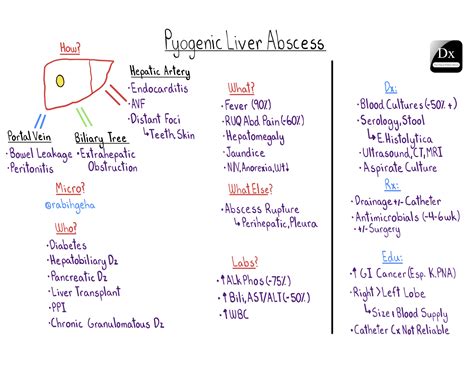 Pyogenic Liver Abscess
Dx
How?
Hepatic Artery
• Endocarditis
• AVF
• Distant Foci
↳ Teeth, Skin
Portal Vein
• Bowel Leakage
• Peritonitis
Biliary Tree
• Extrahepatic
Obstruction
Micro?
@rabihgeha
Who?
• Diabetes
• Hepatobiliary Dz
• Pancreatic Dz
• Liver Transplant
• PPI
• Chronic Granulomatous Dz
What?
• Fever (90%)
• RUQ Abd Pain (~60%)
• Hepatomegaly
• Jaundice
• N/V, Anorexia, Wt↓
What Else?
• Abscess Rupture
↳ Perihepatic, Pleura
Labs?
• ↑ Alk Phos (~75%)
• ↑ Bili, AST/ALT (~50%)
• ↑ WBC
Dx:
• Blood Cultures (~50% +)
• Serology, Stool
↳ E. Histolytica
• Ultrasound, CT, MRI
• Aspirate Culture
Rx:
• Drainage +/- Catheter
• Antimicrobials (~4-6wk)
• +/- Surgery
Edu:
• ↑ GI Cancer (Esp. K. PNA)
• Right > Left Lobe
↳ Size & Blood Supply
• Catheter Cx Not Reliable